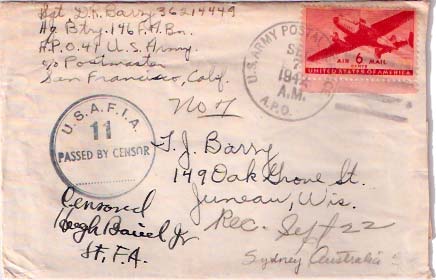 Sgt. D.R. Barry 36214449
Hq Btry. 146 F.A. Bn.
A.P.O. 41 U.S. Army
c/o Postmaster
San Francisco, Caly.
U.S. ARMY POSTAL
SE
7
194
A.M.
A.P.O.
AIR 6 MAIL
CENTS
UNITED STATES OF AMERICA
No 7
U.S.A.F.I.A.
11
PASSED BY CENSOR
T. J. Barry
149 Oak Grove St.
Juneau, Wis.
Censored
Hugh Jr
Lt. F.A.
Rec. Sept 22
Sydney Australia